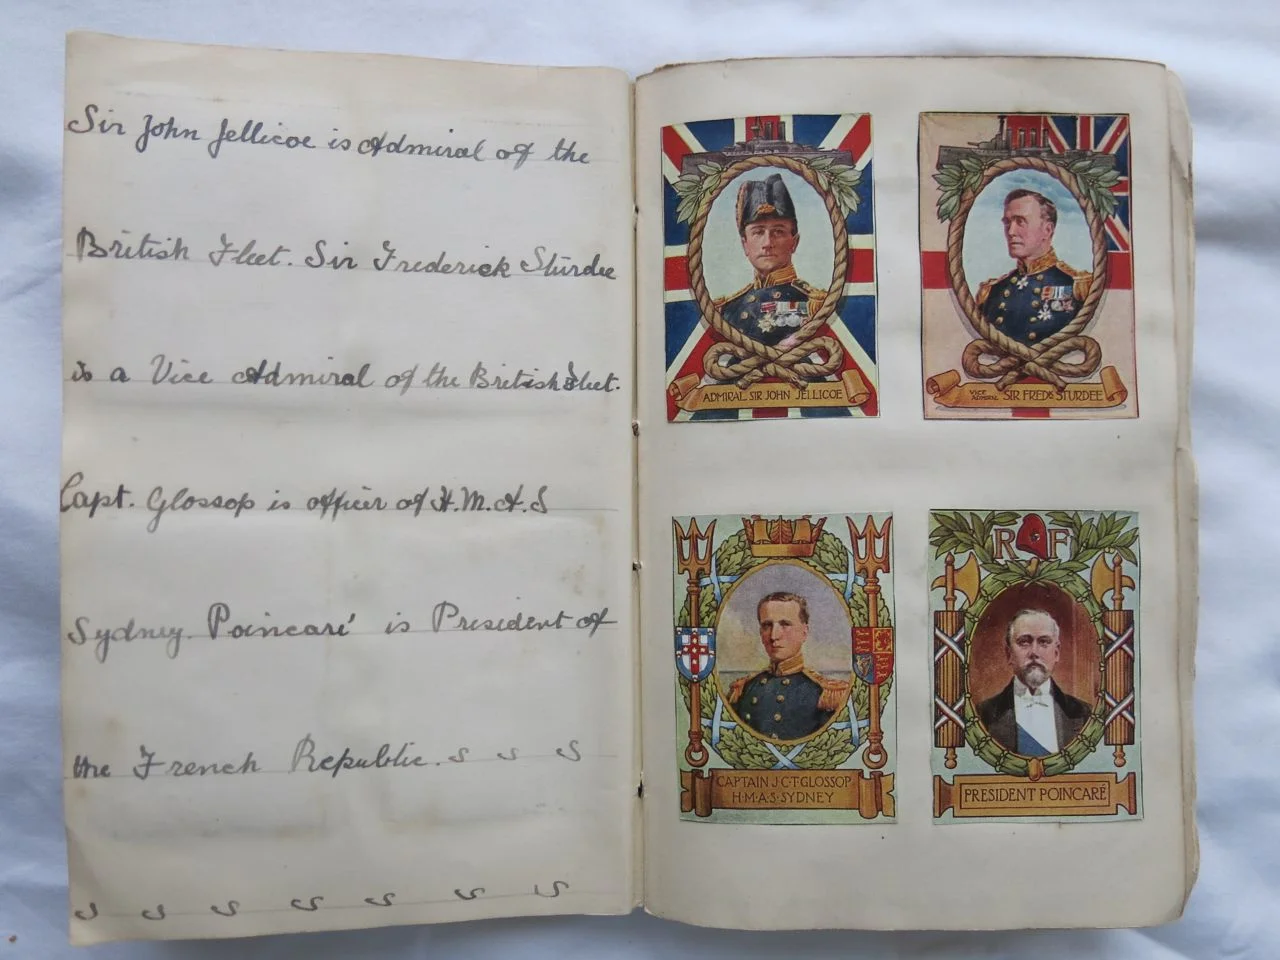 Sir John Jellicoe is Admiral of the
British Fleet. Sir Frederick Sturdee
is a Vice Admiral of the British Fleet.
Capt. Glossop is officer of H.M.A.S
Sydney. Poincaré is President of
the French Republic. s s s
s s s s s s s
ADMIRAL SIR JOHN JELLICOE
VICE ADMIRAL SIR FREDK STURDEE
CAPTAIN J.C.T. GLOSSOP
H·M·A·S·SYDNEY
R F
PRESIDENT POINCARÉ